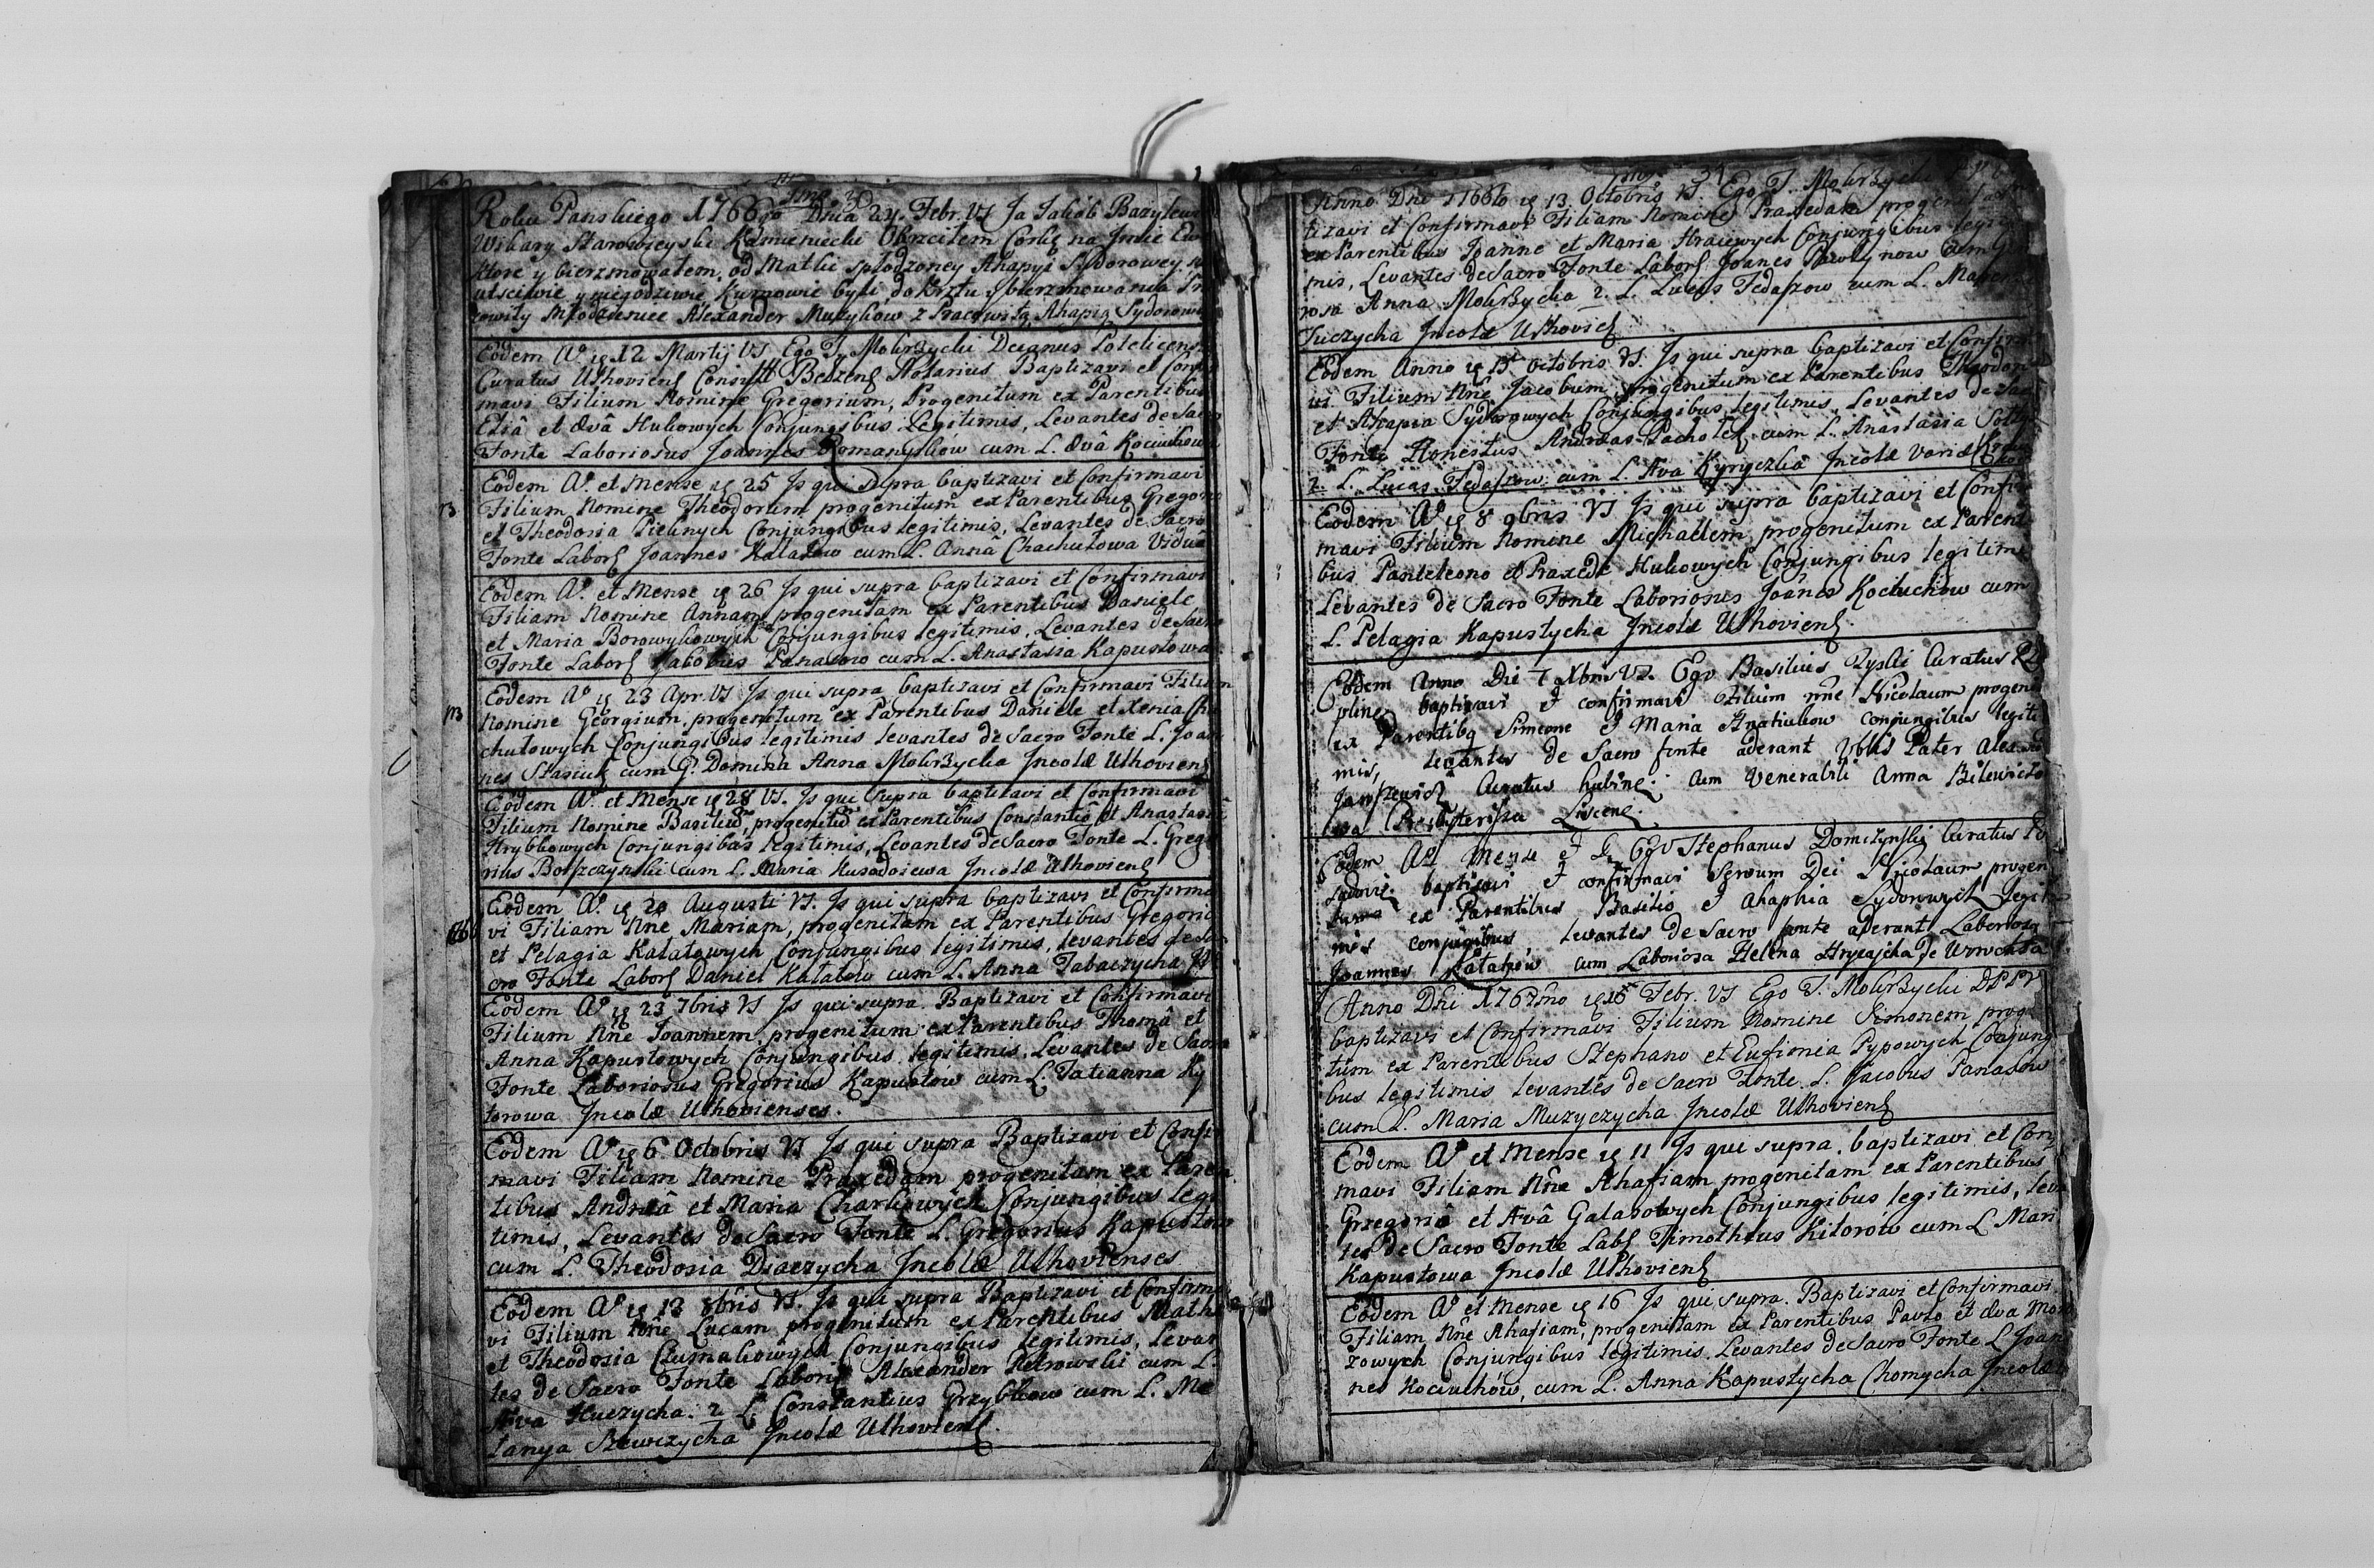 Roku Panskiego 1766go Dnia 24 Febr. VS Ja Jakób Bazylew
Wikary Starowieyski Kamieniecki Okrzciłem Corkę na Imie
ktore y bierzmowałem, od Matki spłodzoney Ahapyi Sydorowey
uściwie y niegodziwie Kumowie byli do Krztu y bierzmowania
cowity Młodzieniec Alexander Muzykow z Pracowitą Ahapią Sydorow
Eodem Aº 12 Martij VS Ego T. Mokrzycki Decanus Potelicens
Curatus Uhoviens Consist Belzens Notarius Baptizavi et Confir
mavi Filium Nomine Gregorium, Progenitum ex Parentibus
Eliâ et Evâ Hukowych Conjungibus Legitimis, Levantes de Sacro
Fonte Laboriosus Joannes Romanyków cum L. Evâ Kociuchowa
Eodem Aº et Mense 25 Js qui supra baptizavi et Confirmavi
Filium Nomine Theodorum progenitum ex Parentibus Gregorio
et Theodosia Pielinych Conjungibus legitimis, Levantes de Sacro
Fonte Labors Joannes Kałatow cum L. Annâ Chachutowa Vidua
Eodem Aº et Mense 26 Js qui supra baptizavi et Confirmavi
Filiam Nomine Annam progenitam ex Parentibus Daniele
et Maria Borowykowych Conjungibus legitimis, Levantes de Sacro
Fonte Labors Jacobus Panasow cum L. Anastasia Kapustowa
Eodem Aº 23 Apr. VS Js qui supra baptizavi et Confirmavi Filium
Nomine Georgium, progenitum ex Parentibus Daniele et Xenia Cha
chutowych Conjungibus legitimis levantes de Sacro Fonte L. Joan
nes Stasiuk cum G. Domina Anna Mokrzycka Incolæ Uhoviens
Eodem Aº et Mense 28 VS. Js qui supra baptizavi et Confirmavi
Filium Nomine Basiliu, progenitu ex Parentibus Constantiô et Anastasiâ
Hrybkowych Conjungibus legitimis, Levantes de Sacro Fonte L. Grego
rius Boyszczynski cum L. Maria Incolæ Uhoviens
Eodem Aº 20 Augusti VS. Js qui supra baptizavi et Confirma
vi Filiam Nne Mariam, progenitam ex Parentibus Gregorio
et Pelagia Kałatowych Conjungibus legitimis, levantes de Sa
cro Fonte Labors Daniel Kałatów cum L. Anna Tabaczycha
Eodem Aº 23 7bris VS Js qui supra Baptizavi et Confirmavi
Filium Nne Joannem progenitum ex Parentibus Thomâ et
Anna Kapustowych Conjungibus legitimis, Levantes de Sacro
Fonte Laboriosus Gregorius Kapustów cum L. Tatianna Ky
torowa Incolæ Uhovienses.
Eodem Aº 6 Octobris VS Js qui supra Baptizavi et Confir
mavi Filiam Nomine Praxedam progenitam ex Paren
tibus Andreâ et Maria Charkowych Conjungibus legi
timis, Levantes de Sacro Fonte L. Gregorius Kapustow
cum L. Theodosia Diaczycha Incolæ Uhovienses
Eodem Aº 13 8bris VS. Js qui supra Baptizavi et Confirma
vi Filium Nne Lucam progenitum ex Parentibus Math
et Theodosia Czumakowych Conjungibus legitimis, Levan
tes de Sacro Fonte Laboris Alexander Petrowski cum L.
Huczycha. 2 L. Constantius Grzybkow cum L. Me
lanya Szewczycha Incolæ Uhoviens.
Anno Dni 1766to 13 Octobris VS. Ego T. Mokrzycki
tizavi et Confirmavi Filiam Nomine Praxedam
ex Parentibus Joanne et Maria Hracowych Conjungibus legiti
mis, Levantes de Sacro Fonte Labors Joanes Pawłynow cum
rosa Anna Mokrzycka 2. L. Lucas Fedaszow cum L.
Incolæ Uhovien
Eodem Anno 15 Octobris VS. Js qui supra baptizavi et Confirma
vi Filium Nne Jacobum, progenitum ex Parentibus Theodor
et Ahapia Sydorowych Conjungibus legitimis, Levantes de Sacr
Fonte Honestus Andreas cum L. Anastasia
2. L. Lucas Fedaszow cum L. Ava Kyryczka Incolæ
Eodem Aº 8 9bris VS Js qui supra baptizavi et Confir
mavi Filium Nomine Michaelem, progenitum ex Parenti
bus Panteleono et Praxeda Hukowych Conjungibus legitimi
Levantes de Sacro Fonte Laboriosus Joanes Kociuchow cum
L. Pelagia Kapustycha Incolæ Uhoviens.
Eodem Anno Die 7 Xbris VS. Ego Basilius Zyski Curatus
baptizavi et confirmavi Filium nne Nicolaum progeni
ex Parentibq Simeone et Maria Hnatiukow conjungibus legiti
mis, levantes de Sacro fonte aderant Pater
Curatus cum Venerabili Anna
Eodem Aº Mense et Ego Stephanus Domczynski Curatus
baptizavi et confirmavi Servum Dei Nicolaum progen
ex Parentibus Basilio et Ahaphia Sydorowych legiti
mis conjugibus, levantes de Sacro fonte aderant Laboriosq
Joannes Kałatzow cum Laboriosa Helena de
Anno Dni 1767mo 16 Febr. VS Ego T. Mokrzycki DPPU
baptizavi et Confirmavi Filium Nomine Simonem proge
tum ex Parentibus Stephano et Eufimia Pypowych Conjung
bus legitimis levantes de Sacro Fonte L. Jacobus Panasow
cum L. Maria Muzyczycha Incolæ Uhoviens
Eodem Aº et Mense 11 Js qui supra. baptizavi et Con
mavi Filiam Nne Ahafiam progenitam ex Parentibus
Grzegoriô et Avâ Galasowych Conjungibus legitimis, leva
tes de Sacro Fonte Labs Timotheus Kitorów cum L Mari
Kapustowa Incolæ Uhoviens
Eodem Aº et Mense 16 Js qui supra. Baptizavi et Confirmavi
Filiam Nne Ahafiam, progenitam ex Parentibus Pavlo et Eva
zowych Conjungibus legitimis. Levantes de Sacro Fonte L Joan
nes Kociuchów, cum L. Anna Kapustycha Chomycha Incolæ